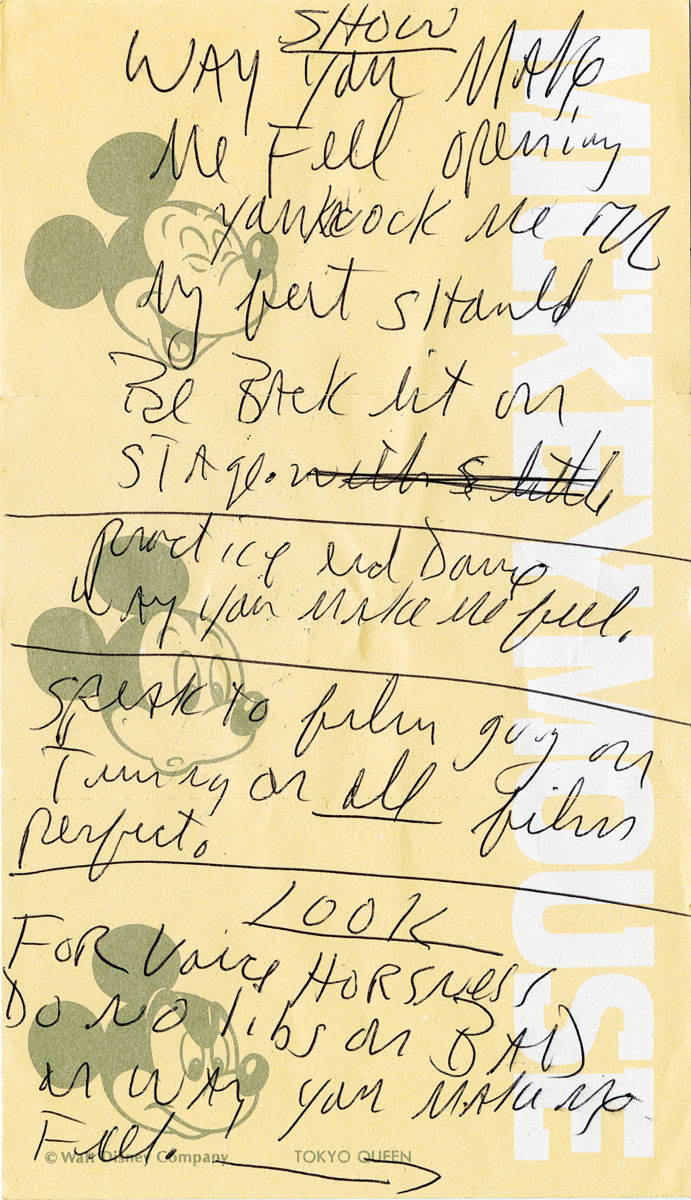 SHOW
WAY you Make
Me Feel opening
cock me in
my feet should
Be Back lit on
STAge. with & little
practice and Dance
WAY you Make Me feel.
SpeAk to film guy on
Timing on all films
perfect.
LOOK
FOR Voice HORSNess
Do No libs on BAD
or WAY you Make Me
Feel.
MICKEY MOUSE
© Walt Disney Company TOKYO QUEEN